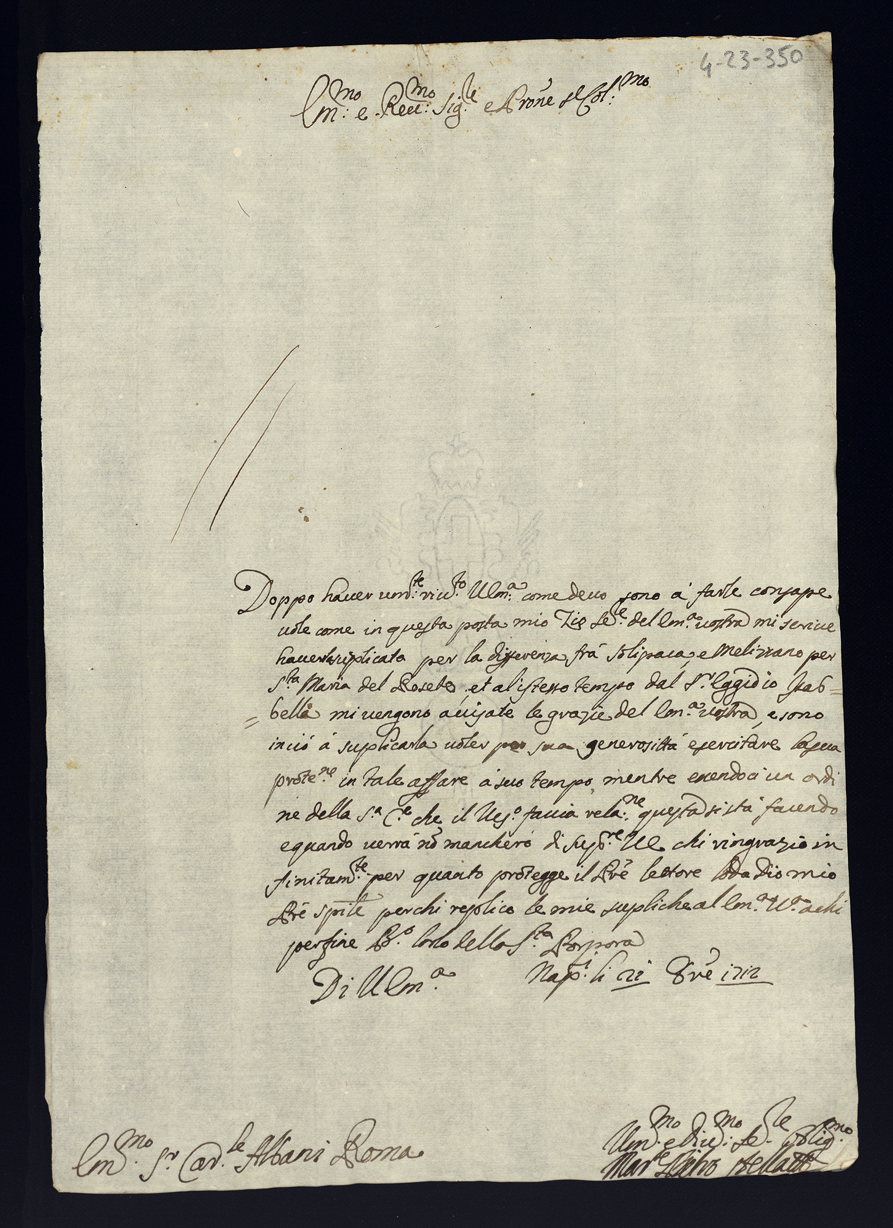 4-23-350
Em:mo e Reu:mo Sig:le e Prone se Col:mo
Doppo hauer um:te riu:to V Em:a come deuo sono à farle consape
uole come in questa posta mio Zio del Em:a uostra mi scriue
hauerla suplicata per la differenza frà Solipaca, e Melizzano per
S:ta Maria del Roseto, et al istesso tempo dal S:r Eggidio Isab=
=bella mi vengono auisate le grazie del Em:a uostra, e sono
inciò à suplicarla uoler per sua generosittà esercitare la sua
prote:ne in tale affare à suo tempo, mentre essendoci un ordi
ne della S:a C:e che il Ues:o faccia rela:ne questa si stà facendo
e quando uerrà nõ mancherò di VE chi ringrazio in
finitam:te per quanto protegge il Prê lettore loda Dio mio
Prê sprile perchi replico le mie supliche al Em:a V:a a chi
per fine B:o lorlo della S:ta Porpora
Di V Em:a Nap:li li 21 8bre 1712
Em:mo S:r Card:le Albani Roma
Um:mo e Diu:mo Se:le Oblig:mo